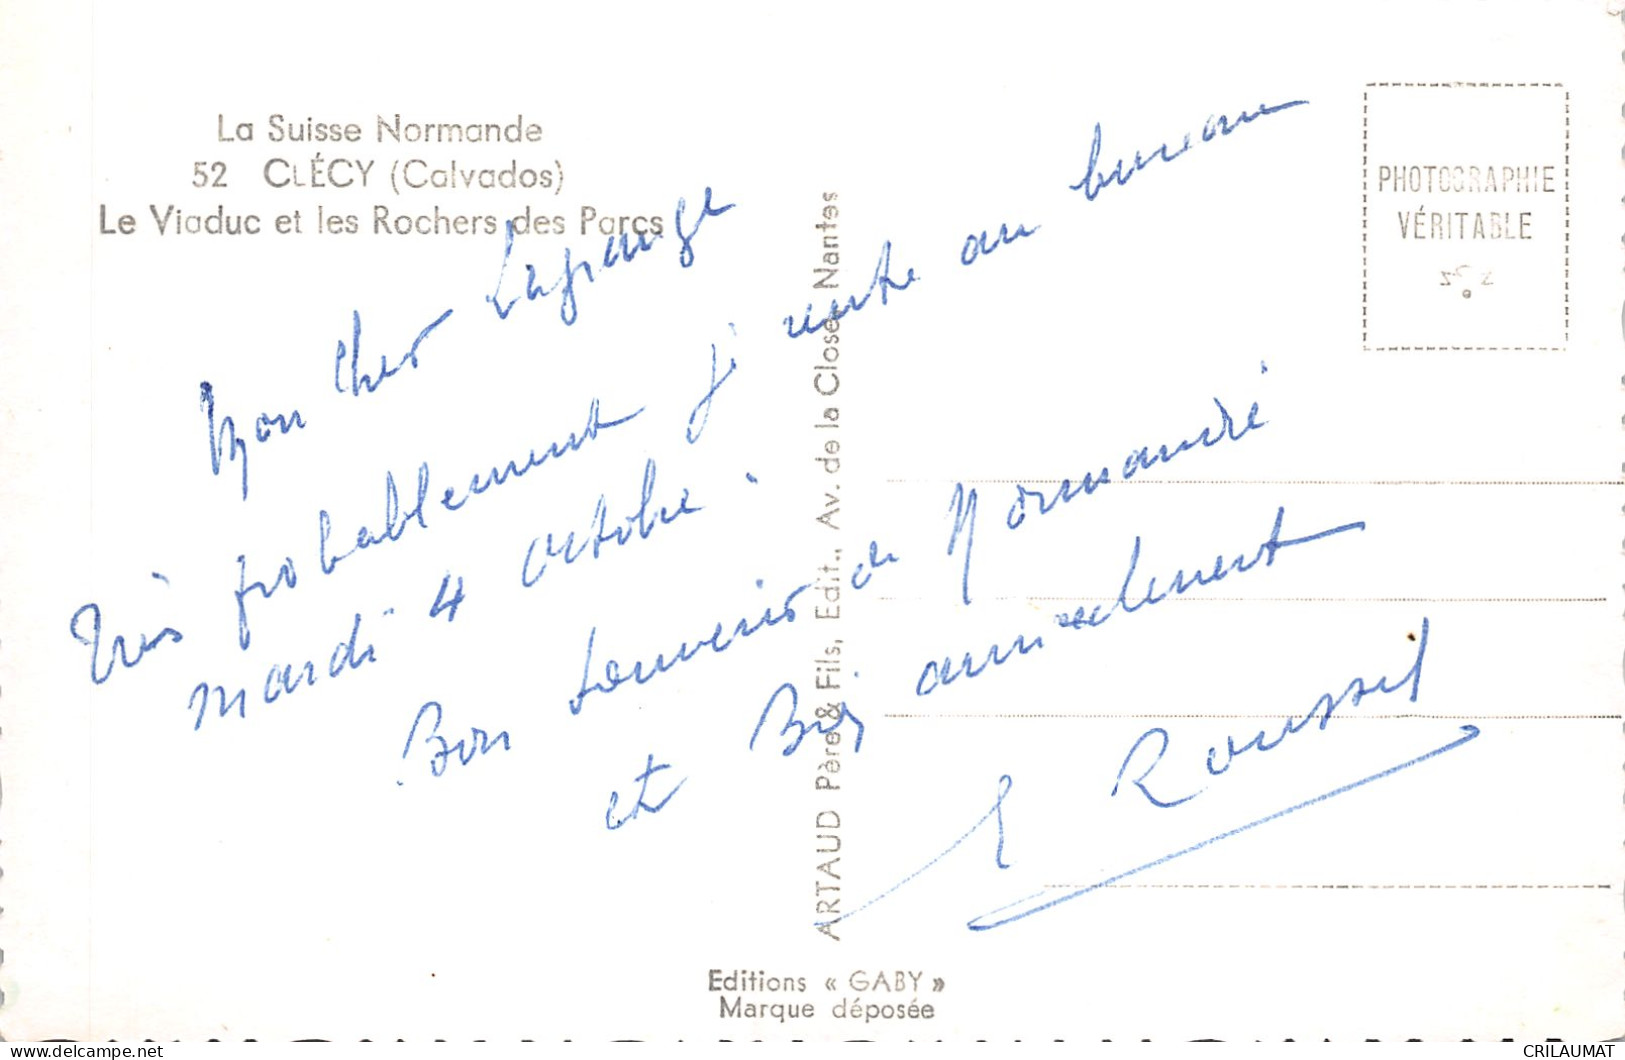 La Suisse Normande
52 CLÉCY (Calvados)
Le Viaduc et les Rochers des Parcs
PHOTOGRAPHIE
VÉRITABLE
Mon cher Lagrange
Très probablement je rentre au bureau
mardi 4 octobre.
Bon souvenir de Normandie
et Bien amicalement
E Roussel
ARTAUD Père & Fils, Edit., Av. de la Close, Nantes
Editions « GABY »
Marque déposée
CRILAUMAT